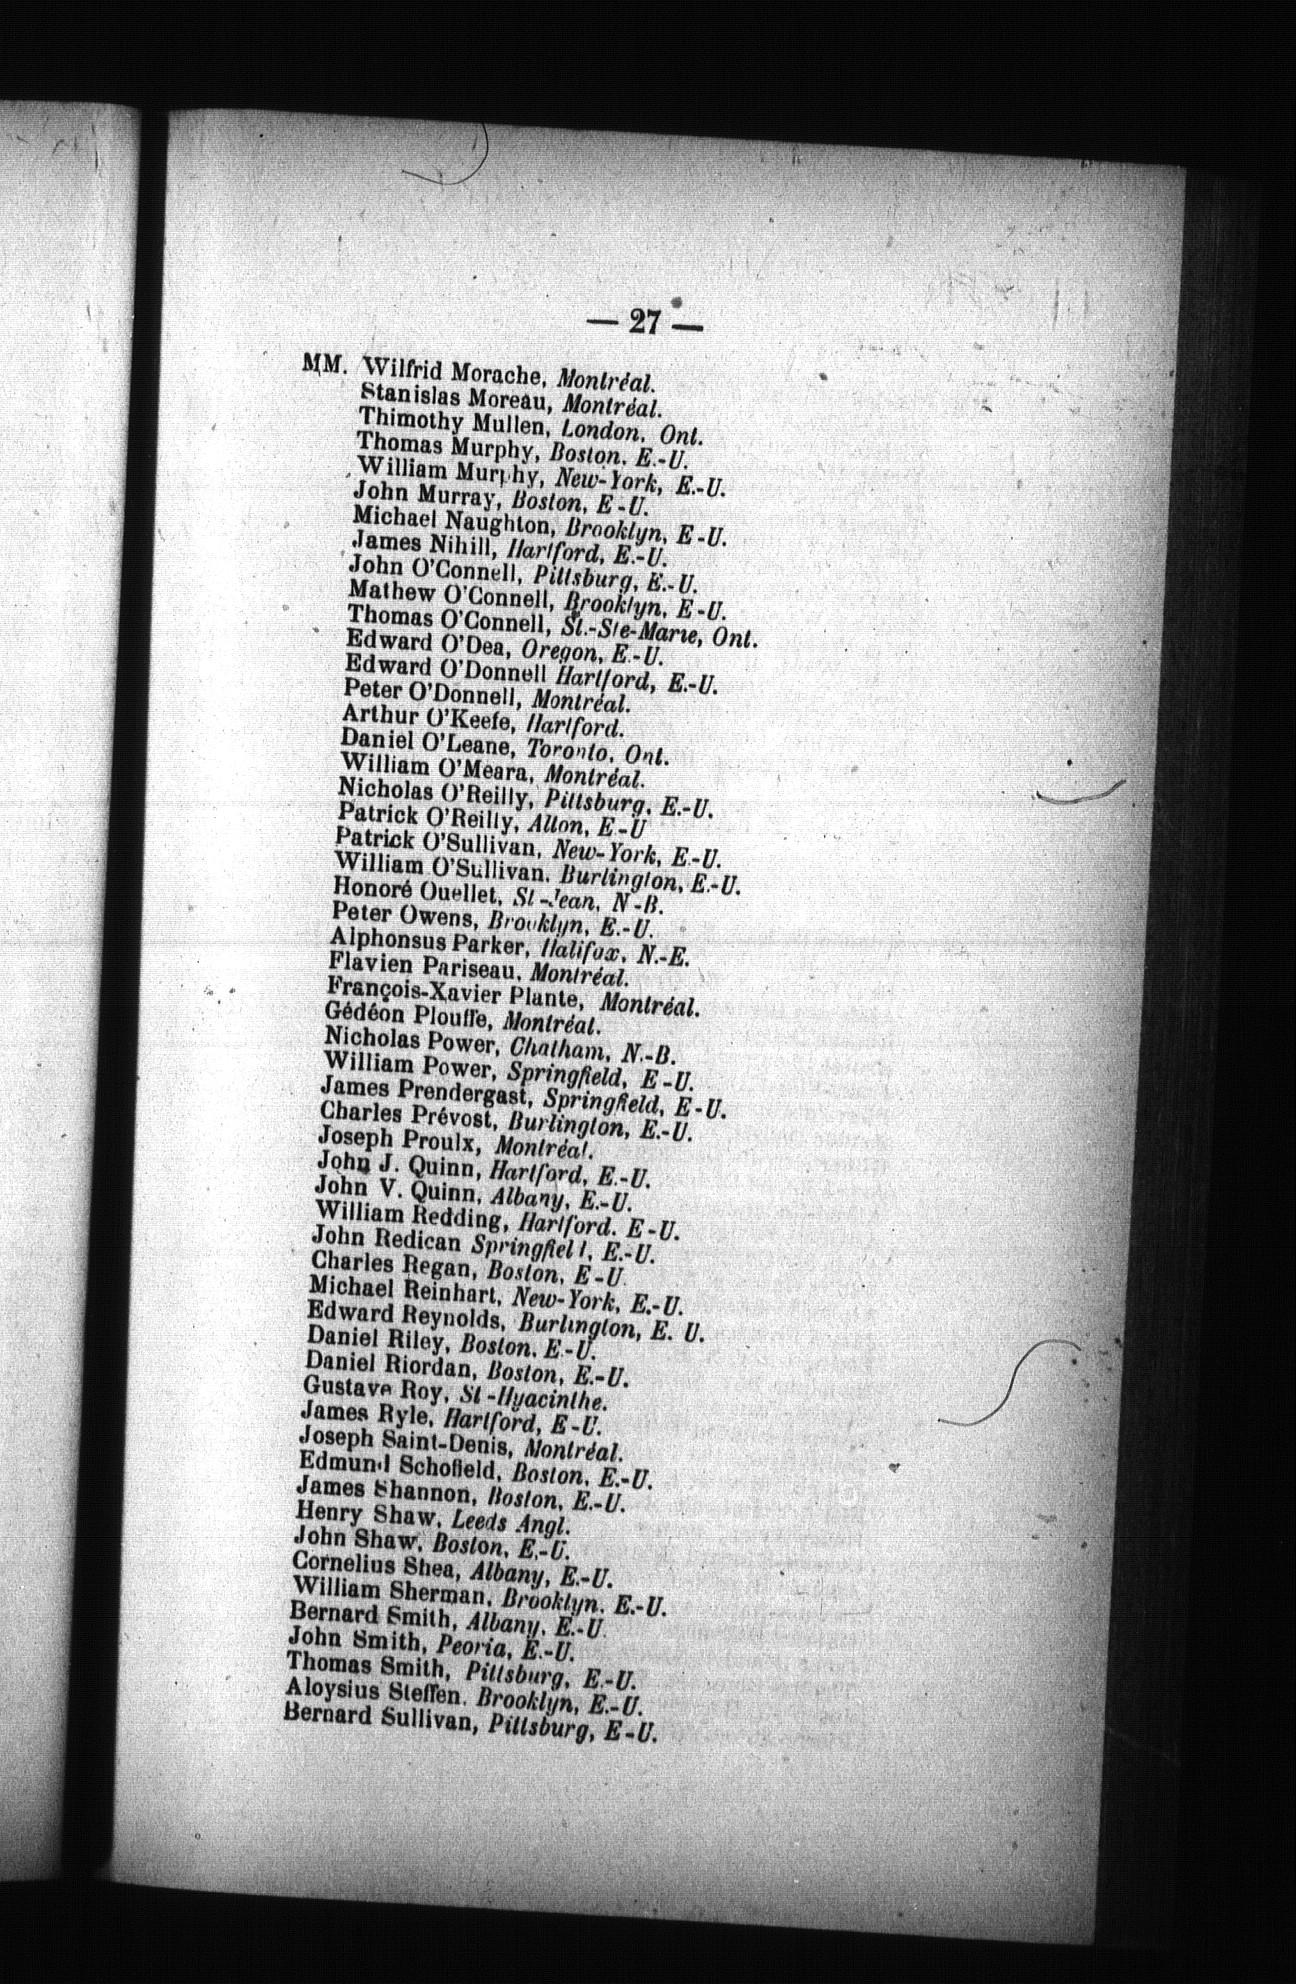 — 27 —
MM. Wilfrid Morache, Montréal.
Stanislas Moreau, Montréal.
Thimothy Mullen, London, Ont.
Thomas Murphy, Boston, E.-U.
William Murphy, New-York, E.-U.
John Murray, Boston, E-U.
Michael Naughton, Brooklyn, E-U.
James Nihill, Hartford, E.-U.
John O'Connell, Pittsburg, E.-U.
Mathew O'Connell, Brooklyn, E-U.
Thomas O'Connell, St.-Ste-Marie, Ont.
Edward O'Dea, Oregon, E.-U.
Edward O'Donnell Hartford, E.-U.
Peter O'Donnell, Montréal.
Arthur O'Keefe, Hartford.
Daniel O'Leane, Toronto, Ont.
William O'Meara, Montréal.
Nicholas O'Reilly, Pittsburg, E.-U.
Patrick O'Reilly, Alton, E-U
Patrick O'Sullivan, New-York, E.-U.
William O'Sullivan. Burlington, E.-U.
Honoré Ouellet, St-Jean, N-B.
Peter Owens, Brooklyn, E.-U.
Alphonsus Parker, Halifax, N.-E.
Flavien Pariseau, Montréal.
François-Xavier Plante, Montréal.
Gédéon Plouffe, Montréal.
Nicholas Power, Chatham, N.-B.
William Power, Springfield, E-U.
James Prendergast, Springfield, E-U.
Charles Prévost, Burlington, E.-U.
Joseph Proulx, Montréal.
John J. Quinn, Hartford, E.-U.
John V. Quinn, Albany, E.-U.
William Redding, Hartford. E-U.
John Redican Springfield, E.-U.
Charles Regan, Boston, E-U.
Michael Reinhart, New-York, E.-U.
Edward Reynolds, Burlington, E. U.
Daniel Riley, Boston, E.-U.
Daniel Riordan, Boston, E.-U.
Gustave Roy, St-Hyacinthe.
James Ryle, Hartford, E-U.
Joseph Saint-Denis, Montréal.
Edmund Schofield, Boston, E.-U.
James Shannon, Boston, E.-U.
Henry Shaw, Leeds Angl.
John Shaw, Boston, E.-U.
Cornelius Shea, Albany, E.-U.
William Sherman, Brooklyn. E.-U.
Bernard Smith, Albany, E.-U.
John Smith, Peoria, E.-U.
Thomas Smith, Pittsburg, E.-U.
Aloysius Steffen. Brooklyn, E.-U.
Bernard Sullivan, Pittsburg, E-U.